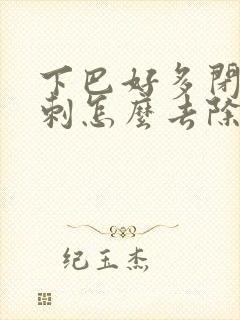 下巴好多閉
刺怎麼去除
纪玉杰